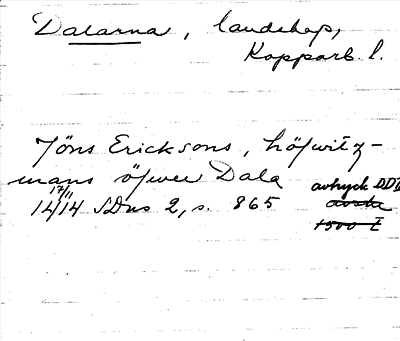 Dalarna, landskap,
Kopparb. l.
Jöns Ericksons, höfwitz-
mans öfwer Dala
17/11
1414 SDns 2, s. 865
avtryck DD I
avskr
1500 I